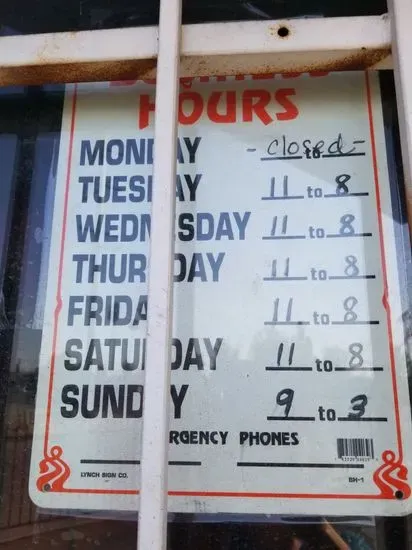 BUSINESS
HOURS
MONDAY - closed - to
TUESDAY 11 to 8
WEDNESDAY 11 to 8
THURSDAY 11 to 8
FRIDAY 11 to 8
SATURDAY 11 to 8
SUNDAY 9 to 3
EMERGENCY PHONES
LYNCH SIGN CO.
BH-1